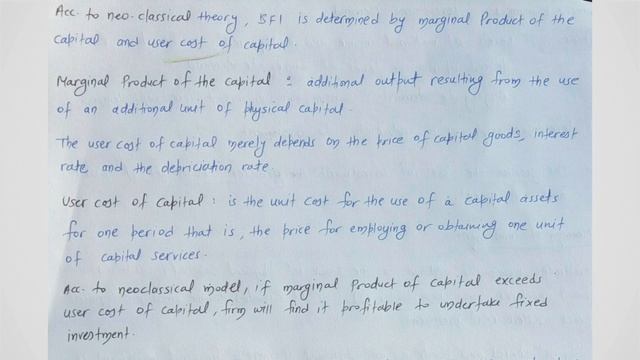 Acc. to neo-classical theory, BFI is determined by marginal Product of the
capital and user cost of capital.
Marginal Product of the capital : additional output resulting from the use
of an additional unit of physical capital.
The user cost of capital merely depends on the price of capital goods, interest
rate, and the depriciation rate
User cost of capital : is the unit cost for the use of a capital assets
for one period that is, the price for employing or obtaining one unit
of capital services.
Acc. to neoclassical model, if marginal Product of capital exceeds
user cost of capital, firm will find it profitable to undertake fixed
investment.